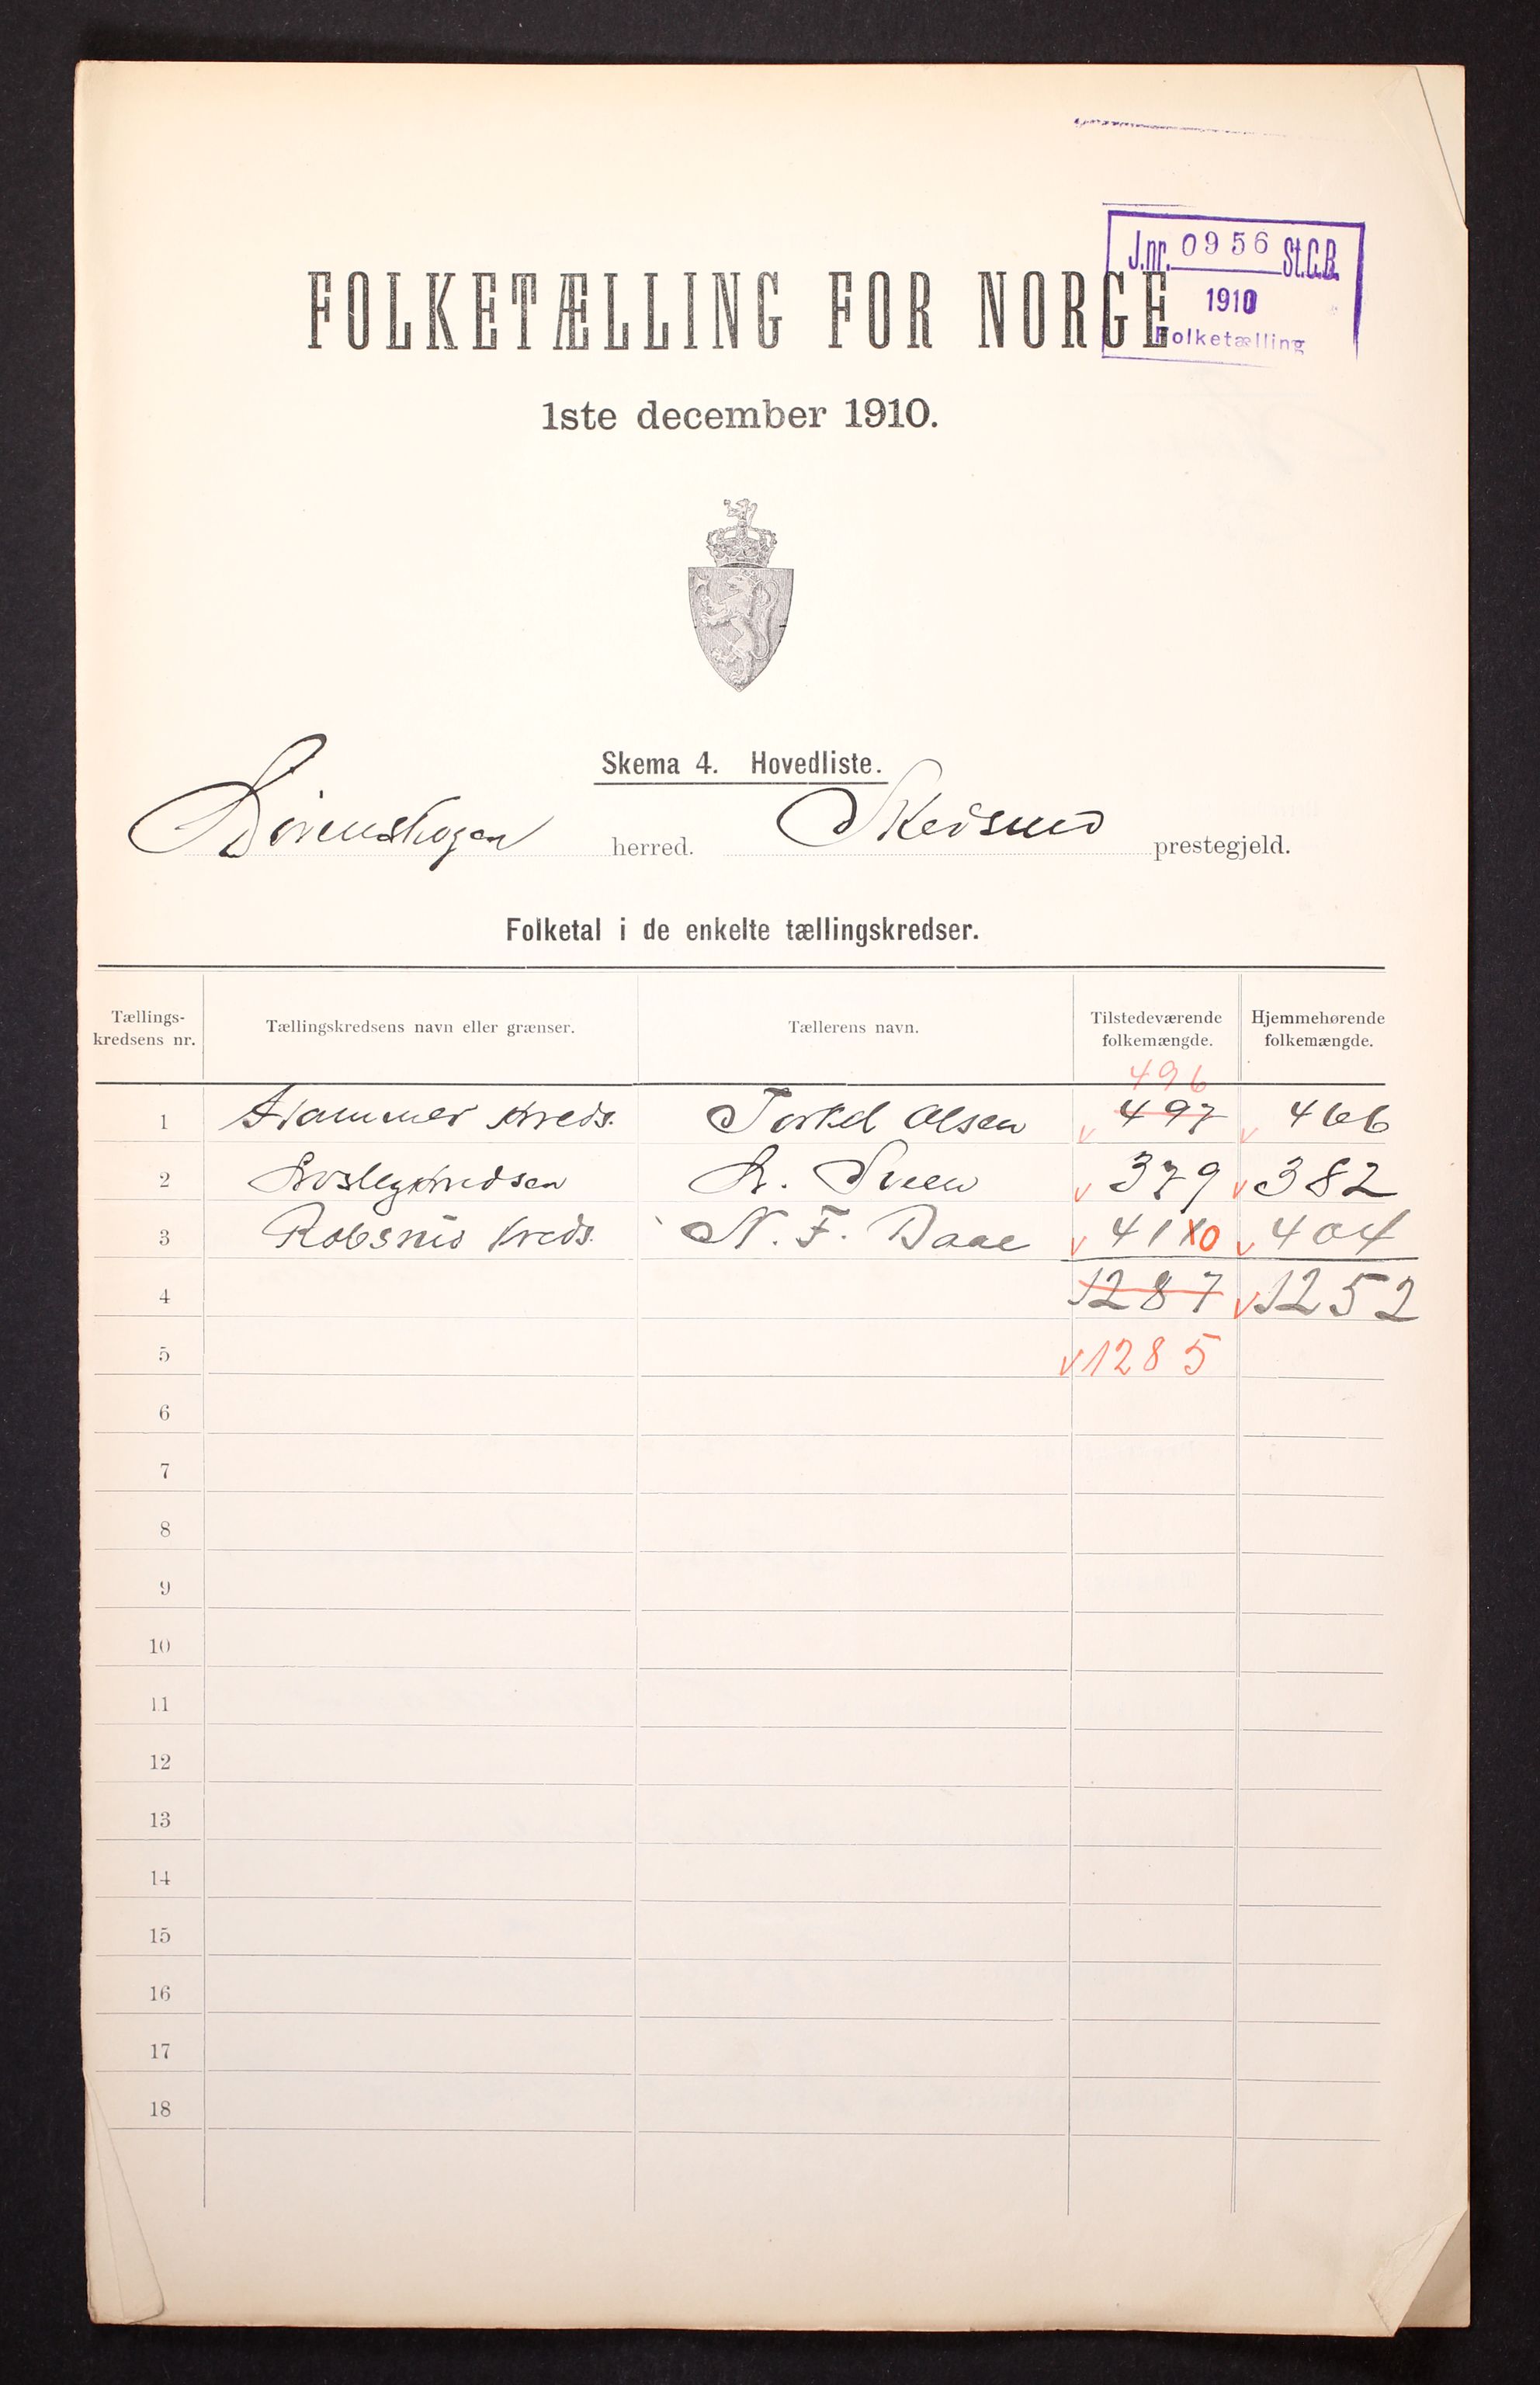 J.nr. 0956 St.C.B.
1910
Folketælling
FOLKETÆLLING FOR NORGE
1ste december 1910.
Skema 4. Hovedliste.
Sørumskogen herred. Skedsmo prestegjeld.
Folketal i de enkelte tællingskredser.
Tællings-kredsens nr. Tællingskredsens navn eller grænser. Tællerens navn. Tilstedeværende folkemængde. Hjemmehørende folkemængde.
496
1 Hammer kreds. Torkel Olsen 497 466
2 379 382
3 Robsrud kreds. N. F. Daae 4110 404
4 1287 1252
5 1285
6
7
8
9
10
11
12
13
14
15
16
17
18